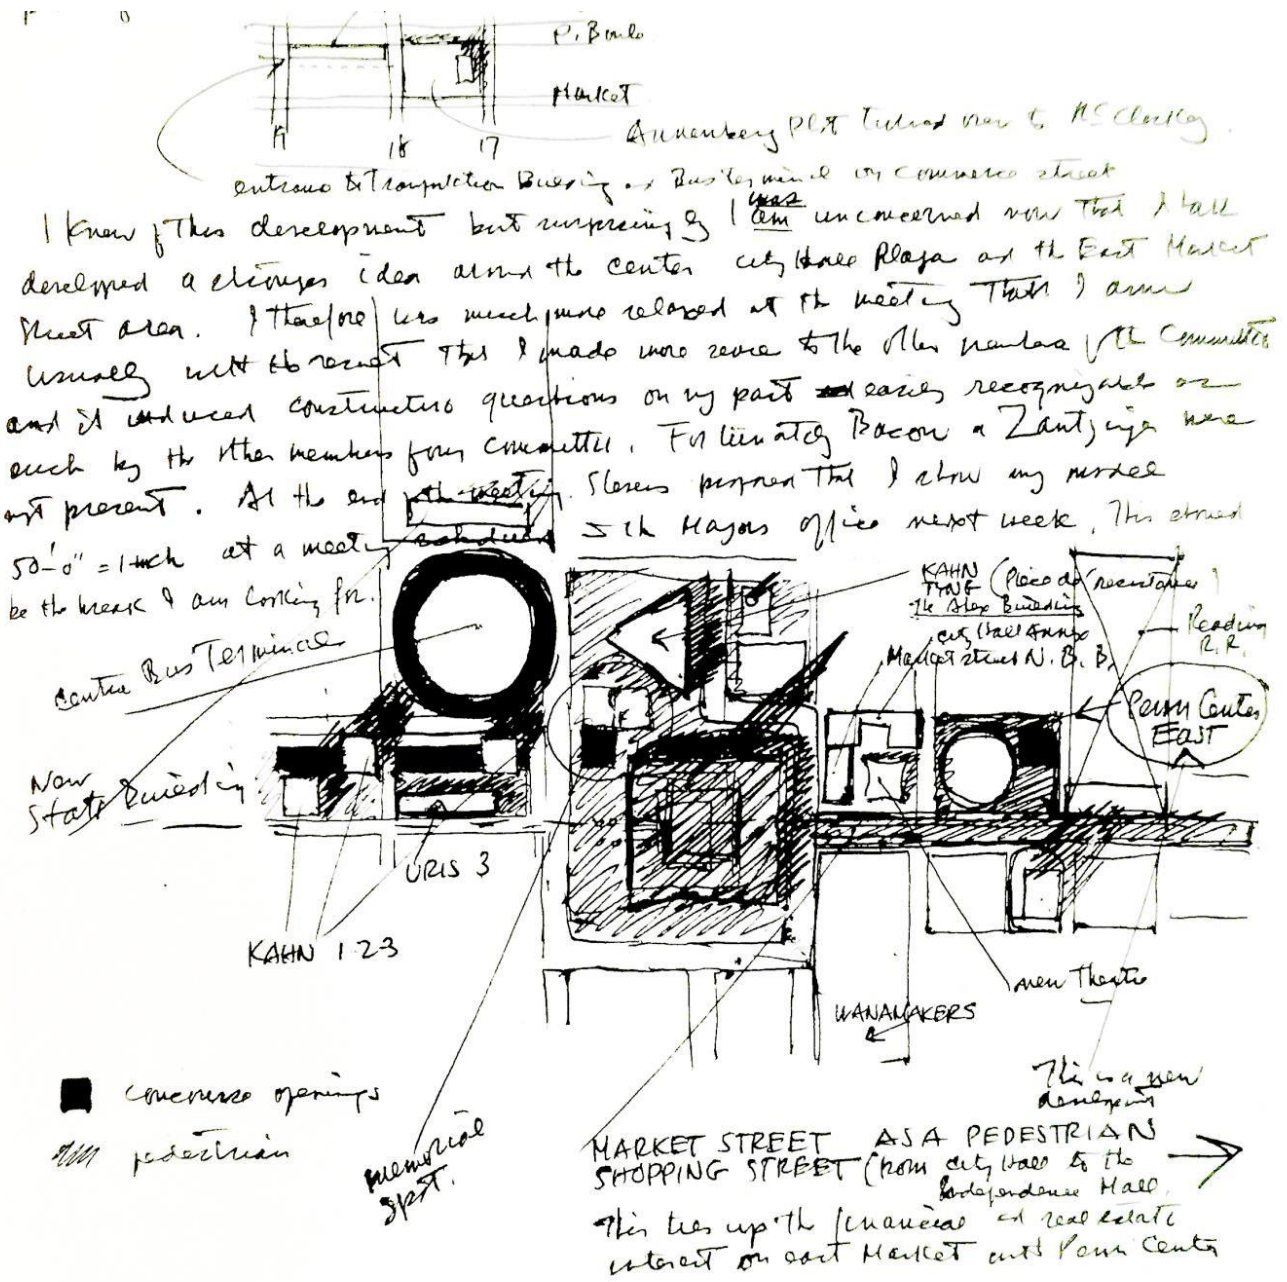 P. Boule
Market
19 18 17
Annenberg Plot turned over to McCloskey.
entrance to Transportation Building and Bus terminal on commerce street
I knew of this development but surprisingly I was am unconcerned now that I have
developed a idea around the center city Hall Plaza and the East Market
Street area. I therefore was much more relaxed at the meeting than I am
usually with the result that I made more sense to the other members of the Committee
and it induced constructive questions on my part easily recognizable as
such by the other members of our committee. Fortunately Bacon and Zantzinger were
not present. At the end of the meeting proposed that I show my model
50'-0" = 1 inch at a meeting in the Mayors office next week. This should
be the break I am looking for.
KAHN
TYNG (Piece de resistance)
The Alex Building
city Hall Annex
Market street N. B. B.
Reading
R.R.
Centre Bus Terminal
Penn Center
EAST
New
State Building
URIS 3
KAHN 1-2-3
new Theatre
WANAMAKERS
This is a new
development
concourse openings
pedestrian
memorial
spot.
MARKET STREET AS A PEDESTRIAN
SHOPPING STREET (from city Hall to the
Independence Mall.
This ties up the financial and real estate
interest on east Market with Penn Center